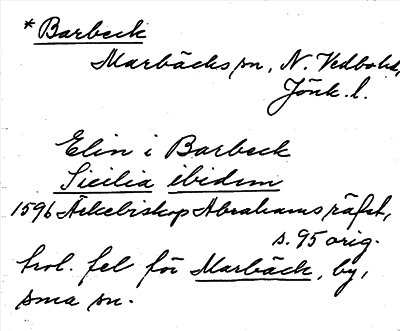 * Barbeck
Marbäcks sn, N. Vedbo hd,
Jönk. l.
Elin i Barbeck
Sicilia ibidem
1596 Ärkebiskop Abrahams räfst,
s. 95 orig.
trol. fel för Marbäck, by,
sma sn.